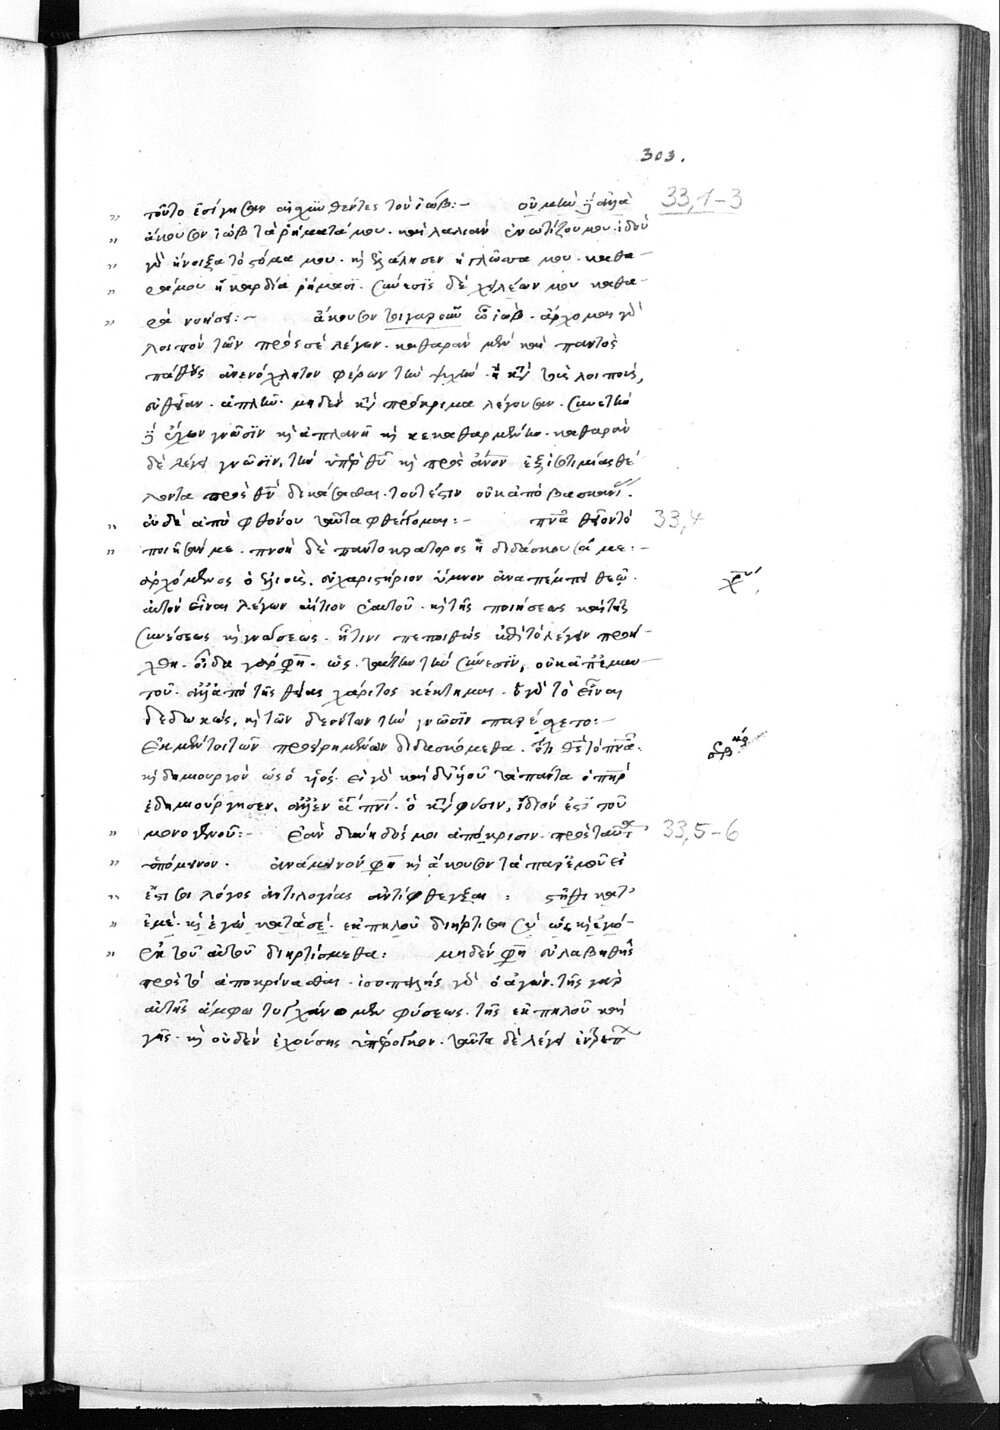 303.
τοῦτο ἐσίγησαν αἰσχυνθέντες τὸν ἰώβ:- οὐ μὴν δὲ ἀλλὰ 33,1-3
ἄκουσον ἰὼβ τὰ ῥήματά μου. καὶ λαλιὰν ἐνωτίζου μου. ἰδοὺ
γὰρ ἤνοιξα τὸ στόμα μου. καὶ ἐλάλησεν ἡ γλῶσσα μου. καθα-
ρά μου ἡ καρδία ῥήμασι. σύνεσις δὲ χειλέων μου καθα-
ρὰ νοήσει:- ἄκουσον φησιν ὦ ἰώβ. ἄρχομαι γὰρ
λοιπὸν τῶν πρὸς σὲ λόγων. καθαρὰν μὲν καὶ παντὸς
πάθους ἀνενόχλητον φέρων τὴν ψυχὴν
εὐθεῖαν. ἁπλῆν. μηδὲν κατὰ πρόκριμα λέγουσαν. συνετὴν
δὲ ἔχων γνῶσιν καὶ ἀπλανῆ καὶ κεκαθαρμένην. καθαρὰν
δὲ λέγει γνῶσιν, τὴν ὑπὲρ θῦ καὶ πρὸς ἄνον ἐξ ἰσοτιμίας θέ-
λοντα πρὸς θν δικάσασθαι. τουτέστιν οὐκ ἀπὸ βασκανίας
οὐδὲ ἀπὸ φθόνου ταῦτα φθέγξομαι:- πνα θεῖον τὸ 33,4
ποιῆσάν με. πνοὴ δὲ παντοκράτορος ἡ διδάσκουσά με:-
ἀρχόμενος ὁ ἐλιοὺς, εὐχαριστήριον ὕμνον ἀναπέμπει θεῷ.
αὐτὸν εἶναι λέγων αἴτιον ἑαυτοῦ. καὶ τῆς ποιήσεως καὶ τῆς
συνέσεως καὶ γνώσεως. ᾗτινι πεποιθὼς ἐπὶ τὸ λέγειν προῆλ-
θεν. οἶδα γάρ φη. ὡς ταύτην τὴν σύνεσιν, οὐκ ἀπ' ἐμαυ-
τοῦ. ἀλλ' ἀπὸ τῆς θείας χάριτος κέκτημαι. ὁ γὰρ τὸ εἶναι
δεδωκώς, καὶ τῶν δεόντων τὴν γνῶσιν παρέσχετο:-
ἐκ μέντοι τῶν προειρημένων διδασκόμεθα. ὅτι θς τὸ πνα.
καὶ δημιουργὸν ὡς ὁ υἱός. εἰ γὰρ καὶ δι' υἱοῦ τὰ πάντα ὁ πηρ
ἐδημιούργησεν, ἀλλ' ἐν ἁγίῳ πνι. ὁ κατὰ φύσιν, ἴδιόν ἐστι τοῦ
μονογενοῦς:- ἐὰν δύνῃ δός μοι ἀπόκρισιν. πρὸς ταῦτα 33,5-6
ὑπόμεινον. ἀνάμεινόν φη καὶ ἄκουσον τὰ παρ' ἐμοῦ εἰ
ἔστι σοι λόγος ἀντιλογίας ἀντίφθεγξαι: στῆθι κατ'
ἐμὲ. καὶ ἐγὼ κατὰ σέ. ἐκ πηλοῦ διήρτισαι σὺ ὡς καὶ ἐγώ-
ἐκ τοῦ αὐτοῦ διηρτίσμεθα: μηδέν φη εὐλαβηθῇς
πρὸς τὸ ἀποκρίνασθαι. ἰσοπαλὴς γὰρ ὁ ἀγών. τῆς γὰρ
αὐτῆς ἄμφω τυγχάνομεν φύσεως. τῆς ἐκ πηλοῦ καὶ
γῆς. καὶ οὐδὲν ἐχούσης ὑπέρογκον. ταῦτα δὲ λέγει